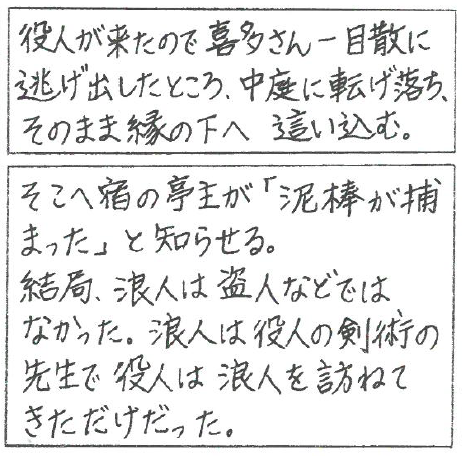 役人が来たので喜多さん一目散に
逃げ出したところ、中庭に転げ落ち、
そのまま縁の下へ 這い込む。
そこへ宿の亭主が「泥棒が捕
まった」と知らせる。
結局、浪人は盗人などでは
なかった。浪人は役人の剣術の
先生で役人は浪人を訪ねて
きただけだった。